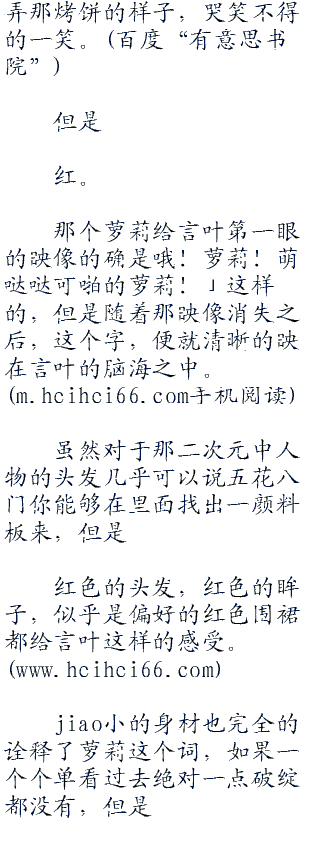 弄那烤饼的样子，哭笑不得
的一笑。(百度“有意思书
院”)
但是
红。
那个萝莉给言叶第一眼
的映像的确是哦！萝莉！萌
哒哒可啪的萝莉！」这样
的，但是随着那映像消失之
后，这个字，便就清晰的映
在言叶的脑海之中。
(m.hcihci66.com手机阅读)
虽然对于那二次元中人
物的头发几乎可以说五花八
门你能够在里面找出一颜料
板来，但是
红色的头发，红色的眸
子，似乎是偏好的红色围裙
都给言叶这样的感受。
(www.hcihci66.com)
jiao小的身材也完全的
诠释了萝莉这个词，如果一
个个单看过去绝对一点破绽
都没有，但是